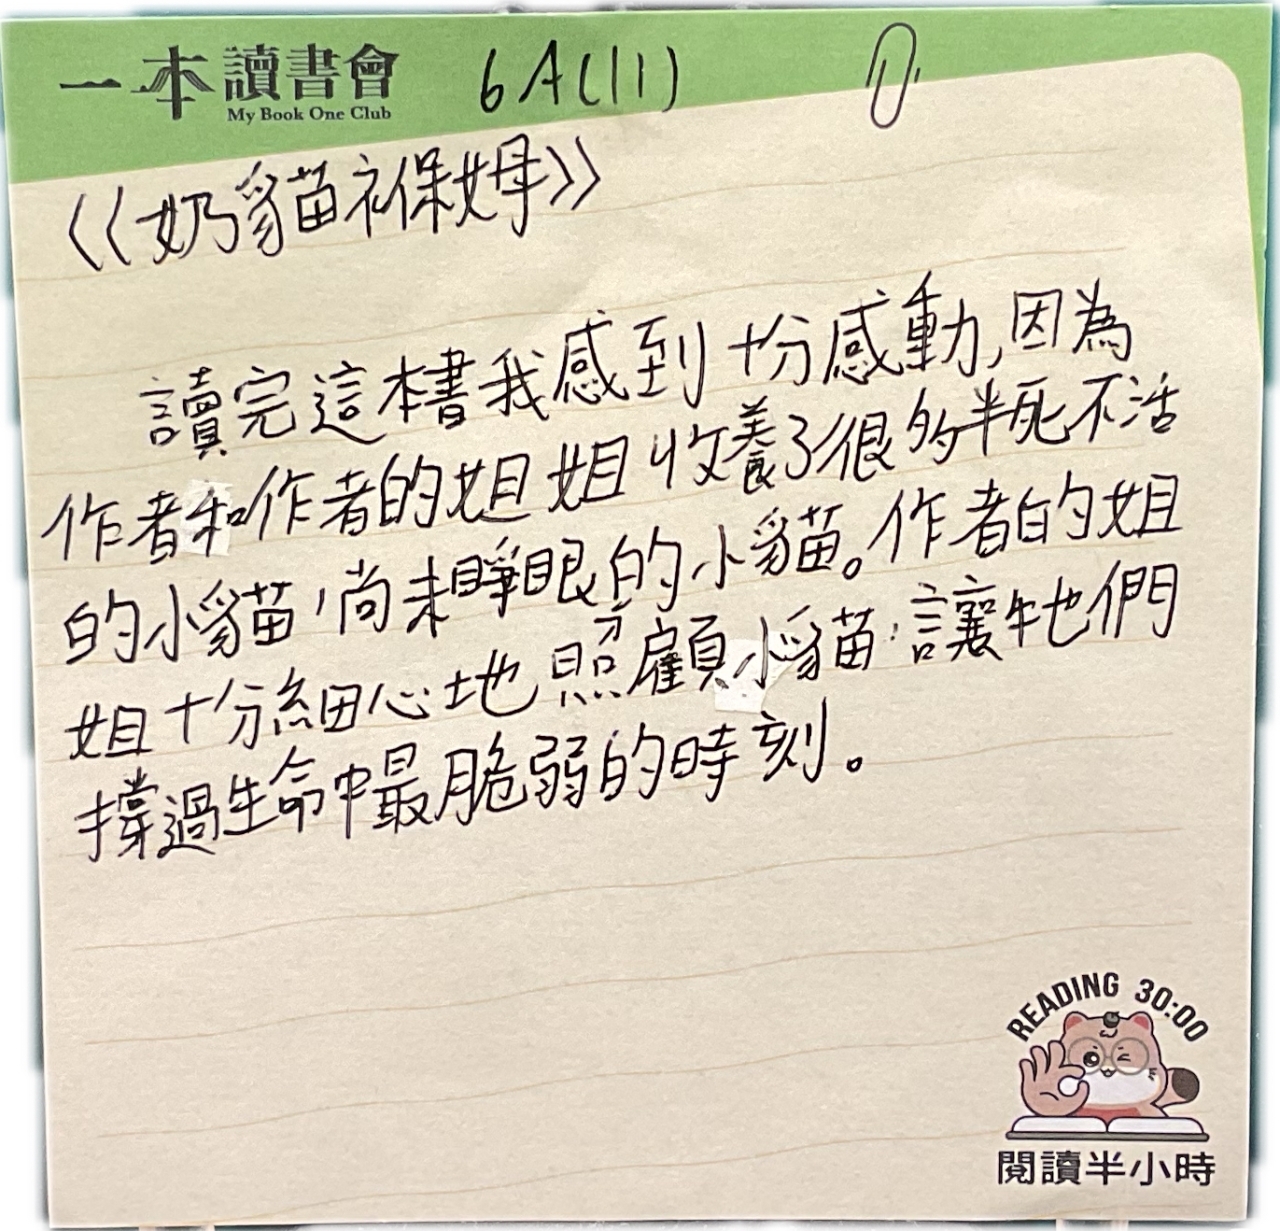 一本讀書會 6A(11)
My Book One Club
《奶貓褓姆》
讀完這本書我感到十分感動,因為
作者和作者的姐姐收養了很多半死不活
的小貓,尚未睜眼的小貓。作者的姐
姐十分細心地照顧小貓,讓牠們
撐過生命中最脆弱的時刻。
READING 30:00
閱讀半小時